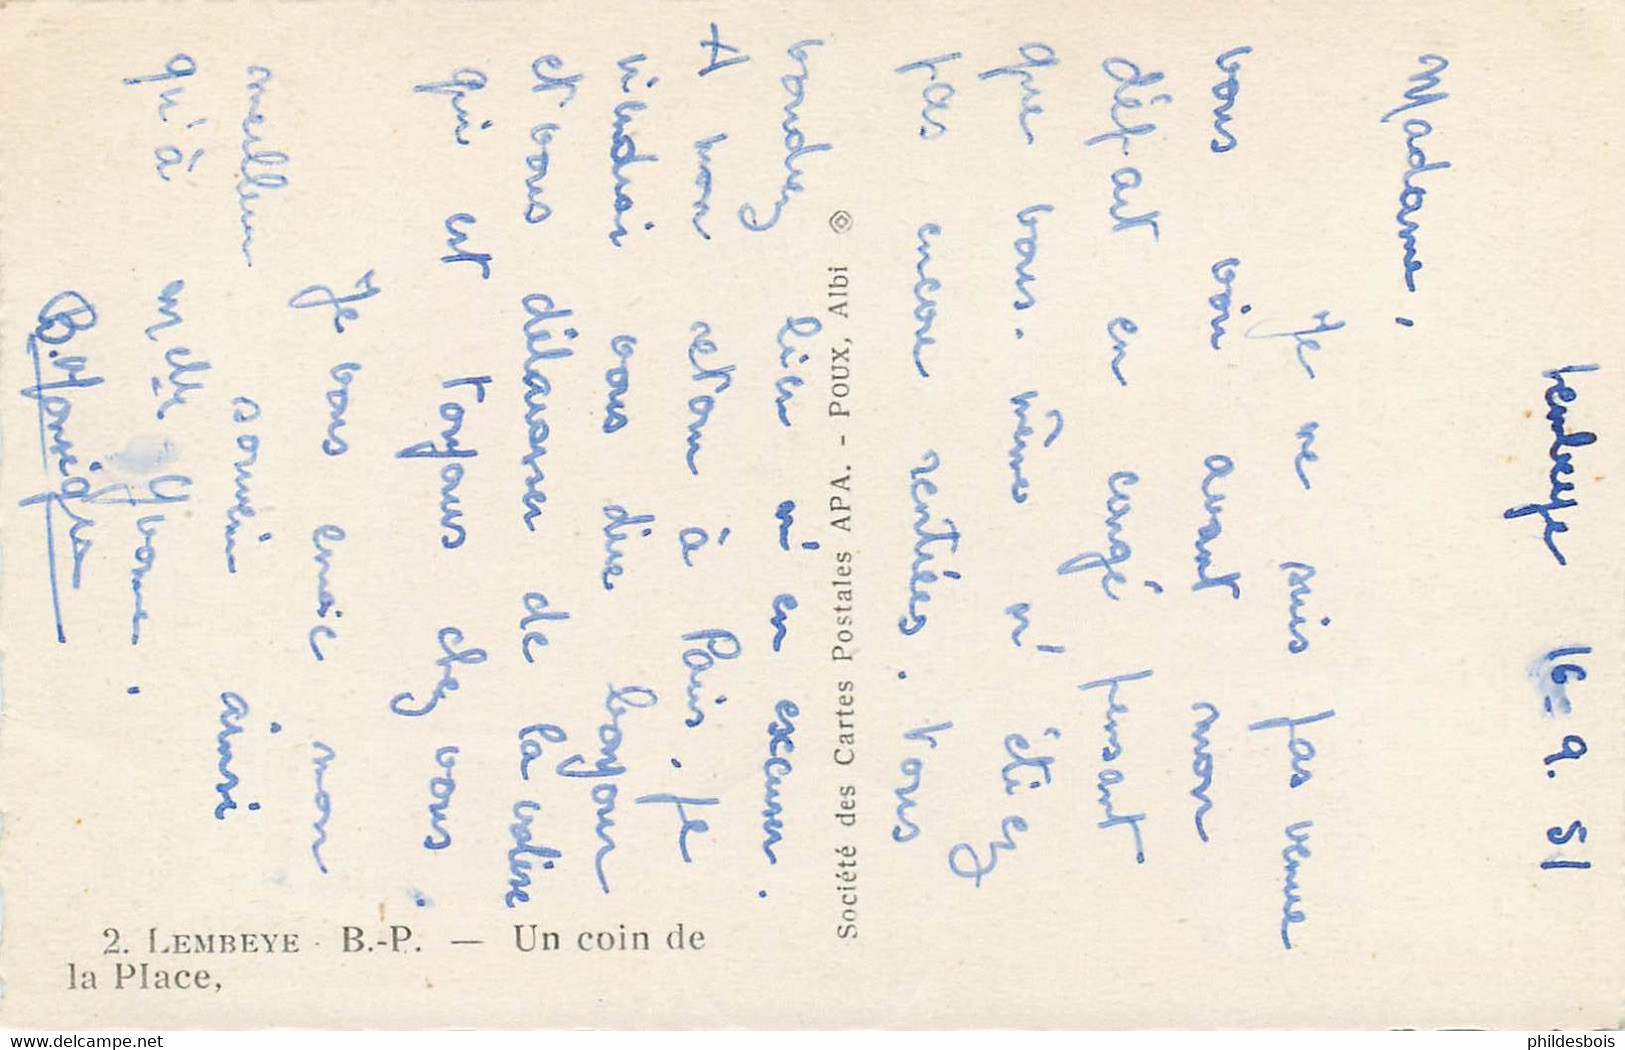 Lembeye 16-9. 51
Madame,
Je ne suis pas venue
vous voir avant mon
départ en congé pensant
que vous. même n'étiez
pas encore rentrées. Vous
voudrez bien m'en excuser.
A mon retour à Paris. Je
viendrai vous dire bonjour
et vous délaisser de la valise
qui est toujours chez vous.
Je vous envoie mon
meilleur souvenir ainsi
qu'à Melle Yvonne.
B.
Société des Cartes Postales APA. - POUX, Albi
2. LEMBEYE - B.-P. — Un coin de
la Place,
delcampe.net
phildesbois